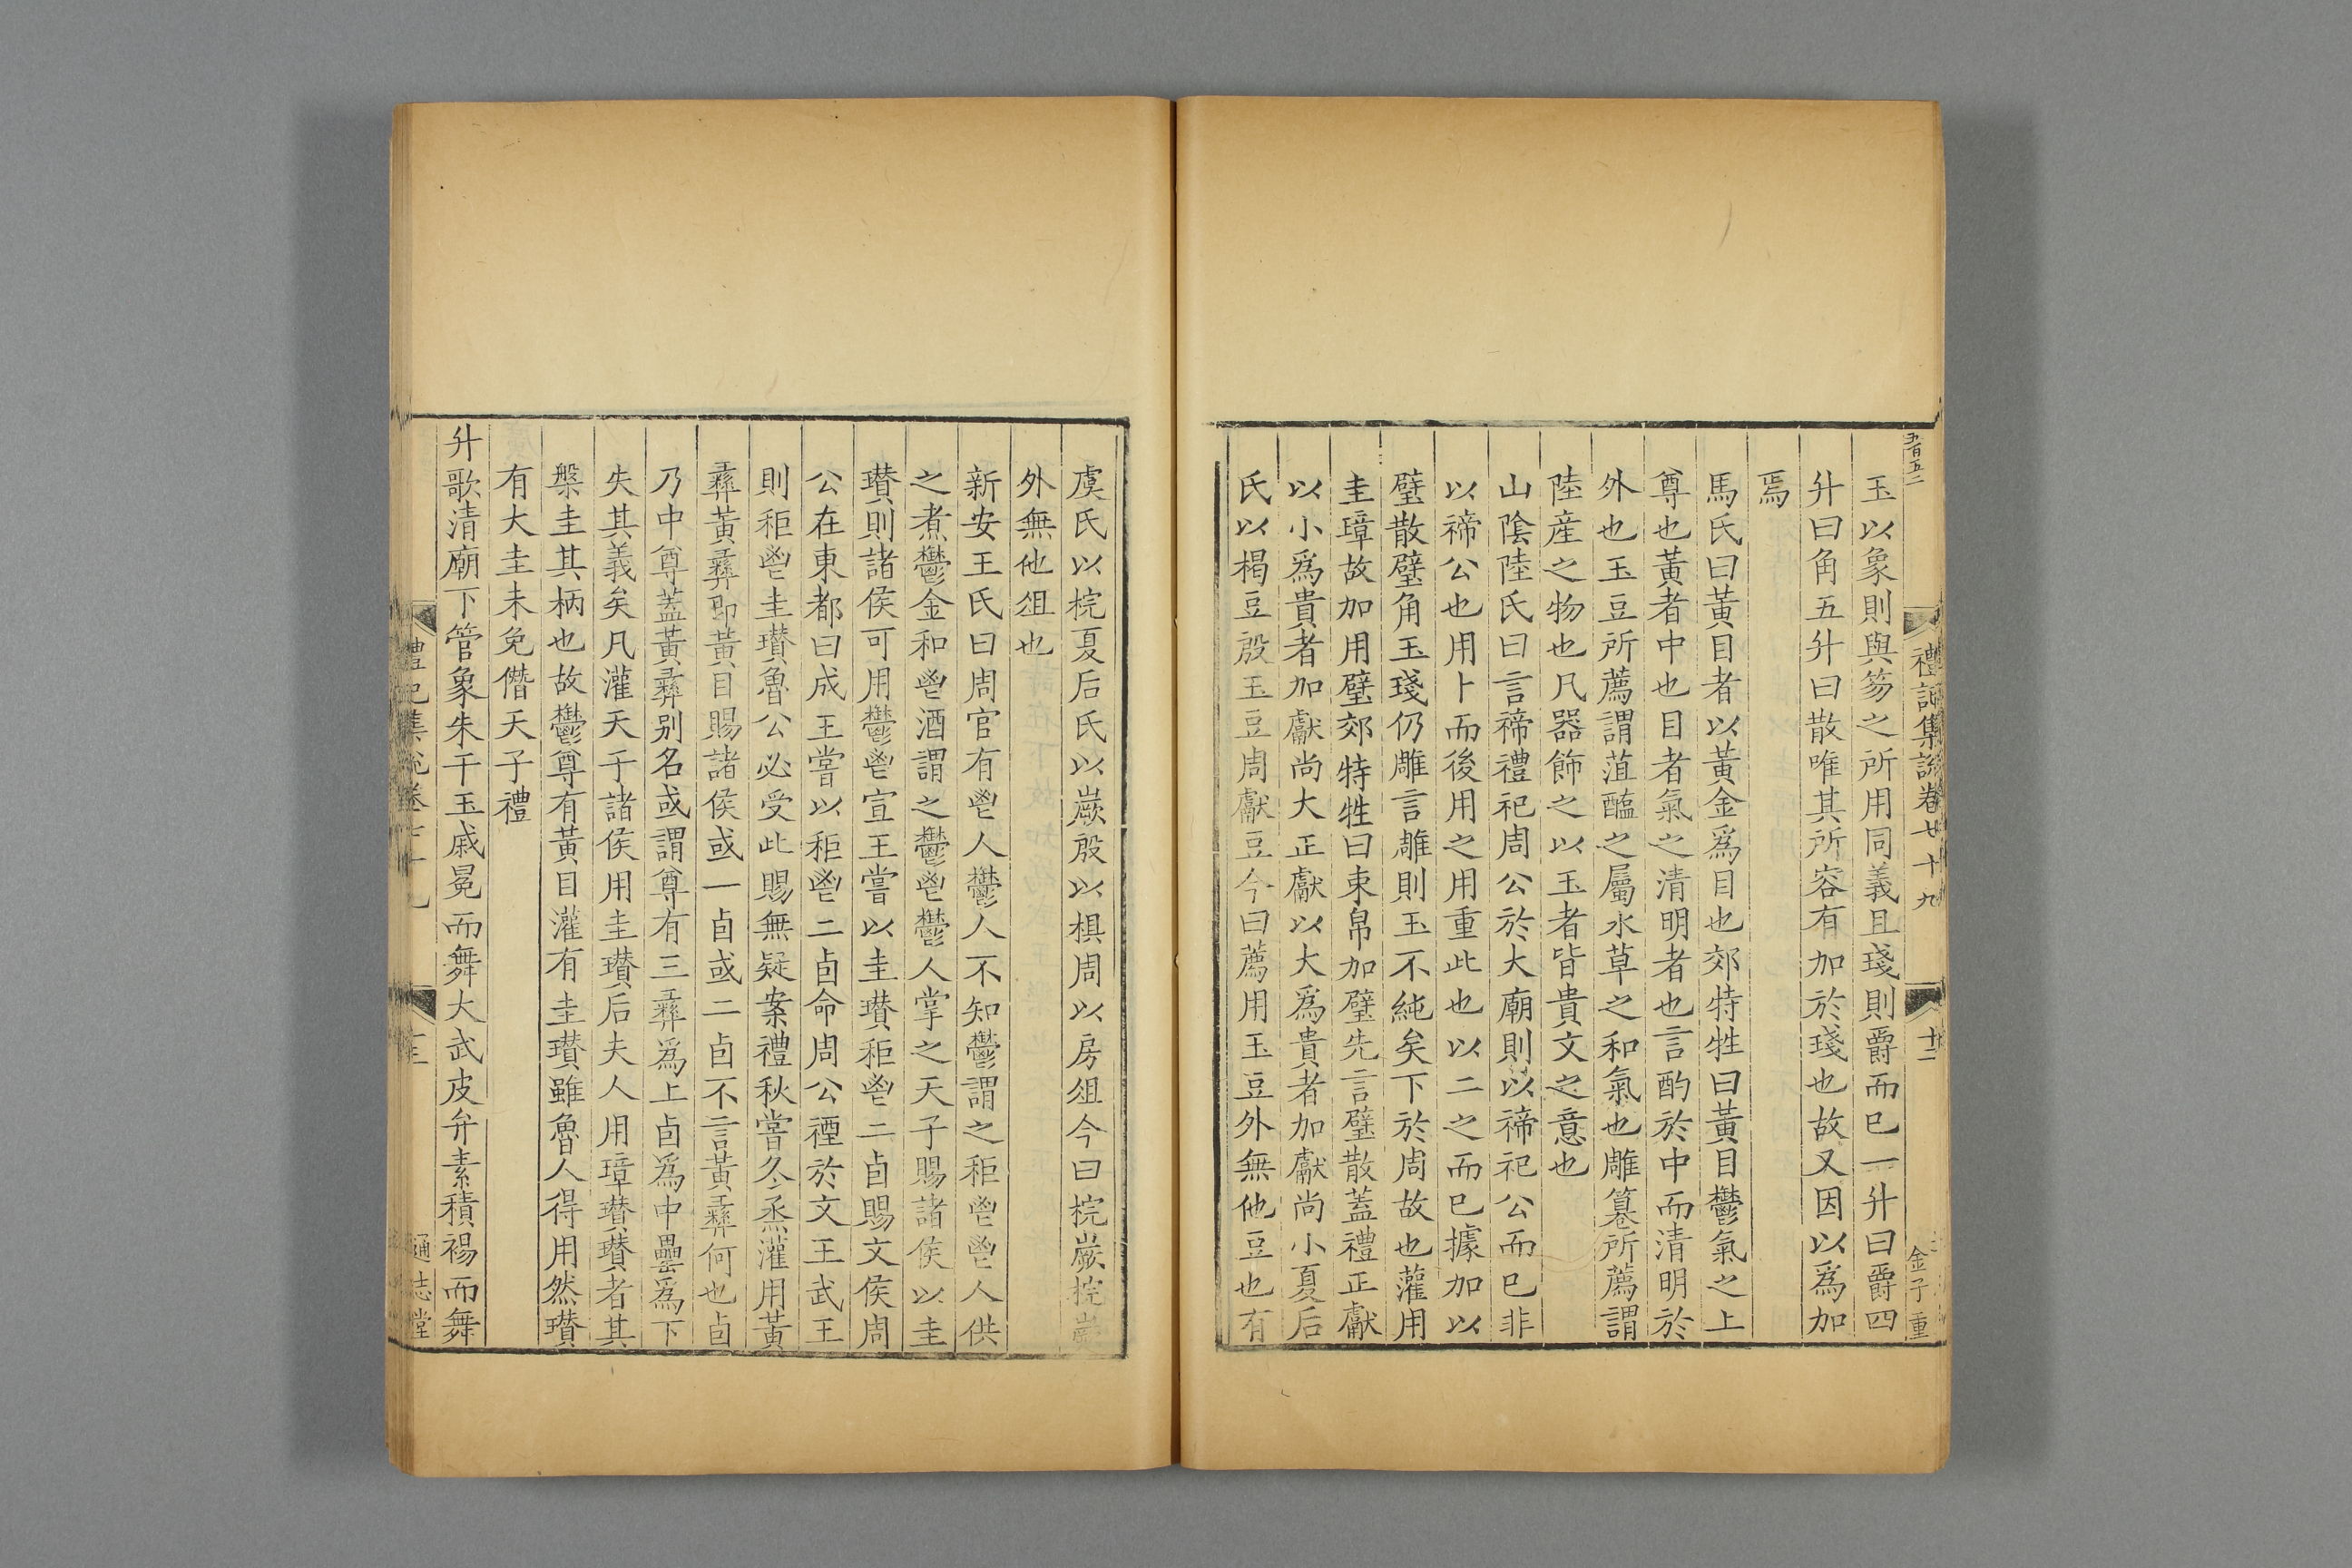 禮記集說卷七十九
十二
金子重
玉以象則與笏之所用同義且琖則爵而已一升曰爵四
升曰角五升曰散唯其所容有加於琖也故又因以為加
焉
馬氏曰黃目者以黃金爲目也郊特牲曰黃目鬱氣之上
尊也黃者中也目者氣之清明者也言酌於中而清明於
外也玉豆所薦謂菹醢之屬水草之和氣也雕篹所薦謂
陸産之物也凡器飾之以玉者皆貴文之意也
山陰陸氏曰言禘禮祀周公於大廟則以禘祀公而已非
以禘公也用卜而後用之用重此也以二之而已據加以
璧散璧角玉琖仍雕言雕則玉不純矣下於周故也灌用
圭璋故加用璧郊特牲曰束帛加璧先言璧散蓋禮正獻
以小爲貴者加獻尚大正獻以大爲貴者加獻尚小夏后
氏以楬豆殷玉豆周獻豆今曰薦用玉豆外無他豆也有
虞氏以梡夏后氏以嶡殷以椇周以房俎今曰梡嶡梡嶡
外無他俎也
新安王氏曰周官有鬯人鬱人不知鬱謂之秬鬯鬯人供
之煮鬱金和鬯酒謂之鬱鬯鬱人掌之天子賜諸侯以圭
瓚則諸侯可用鬱鬯宣王嘗以圭瓚秬鬯二卣賜文侯周
公在東都曰成王嘗以秬鬯二卣命周公禋於文王武王
則秬鬯圭瓚魯公必受此賜無疑案禮秋嘗冬烝灌用黃
彝黃彝即黃目賜諸侯或一卣或二卣不言黃彝何也卣
乃中尊蓋黃彝别名或謂尊有三彝爲上卣爲中罍爲下
失其義矣凡灌天子諸侯用圭瓚后夫人用璋瓚瓚者其
槃圭其柄也故鬱尊有黃目灌有圭瓚雖魯人得用然瓚
有大圭未免僭天子禮
升歌清廟下管象朱干玉戚冕而舞大武皮弁素積裼而舞
禮記集說卷七十九
通志堂